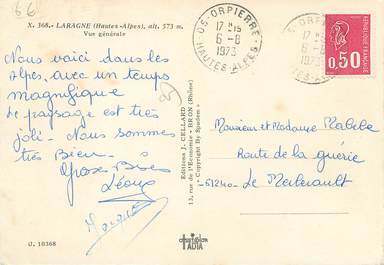 66
X. 368. - LARAGNE (Hautes-Alpes), alt. 573 m.
Vue générale
Nous voici dans les
Alpes, avec un temps
magnifique
Le paysage est très
joli - Nous sommes
très Bien -
Gros Bises
G. 10368
Editions J. CELLARD - BRON (Rhône)
13, rue de l'Economie
Copyright By Spadem
05-ORPIERRE
17 H15
6-8
1973
HAUTES-ALPES
05-ORPIE
17 H15
6-8
1973
POSTES
FRANCE
0,50
Monsieur et Madame
Route de la
61240 - Le Merlerault